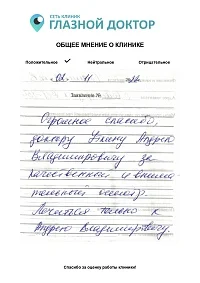 СЕТЬ КЛИНИК
ГЛАЗНОЙ ДОКТОР
ОБЩЕЕ МНЕНИЕ О КЛИНИКЕ
Положительное ✓ Нейтральное Отрицательное
Заявление №
Огромное спасибо,
доктору Андрею
Владимировичу за
качественный и внима-
тельный осмотр.
Лечиться только к
Андрею Владимировичу.
Спасибо за оценку работы клиники!